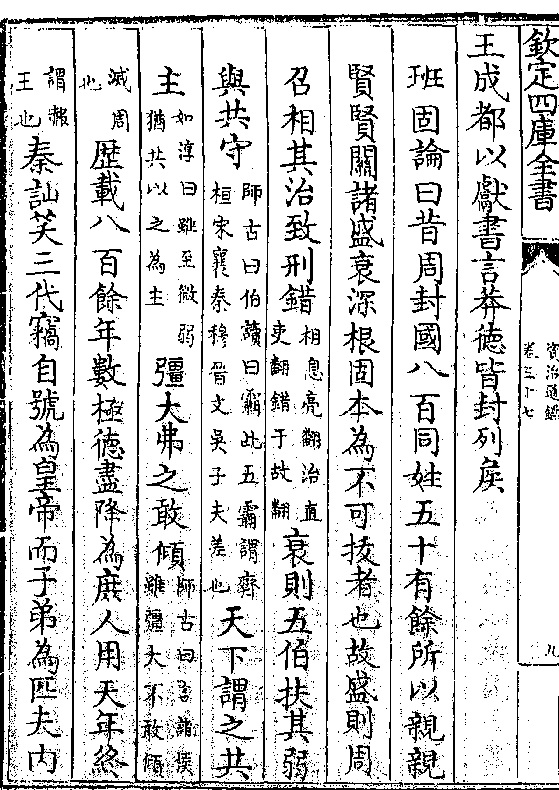 欽定四庫全書
資治通鑑
卷三十七
九
王成都以獻書言莽德皆封列侯
班固論曰昔周封國八百同姓五十有餘所以親親
賢賢關諸盛衰深根固本為不可拔者也故盛則周
召相其治致刑錯相息亮翻治直吏翻錯于故翻衰則五伯扶其弱
與共守師古曰伯讀曰霸此五霸謂齊桓宋襄秦穆晉文吳子夫差也天下謂之共
主如淳曰雖至微弱猶共以之為主彊大弗之敢傾師古曰言諸侯雖彊大不敢傾
滅周也歴載八百餘年數極德盡降為庶人用天年終
謂赧王也秦訕笑三代竊自號為皇帝而子弟為匹夫内